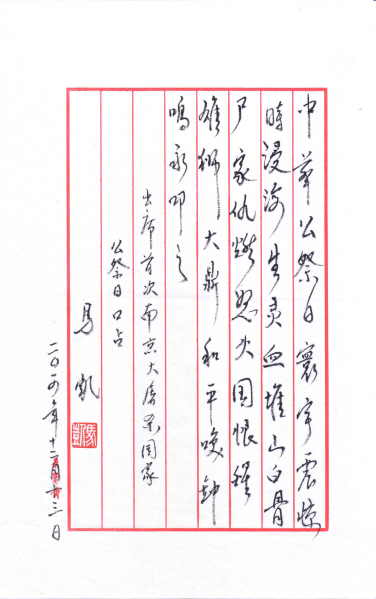 中华公祭日寰宇震惊
时浸海生灵血堆山白骨
尸家仇燃怒火国恨醒
雄狮大鼎和平唤钟
鸣永叩之
出席首次南京大屠杀国家
公祭日口占
马凯
二〇一四年十二月十三日